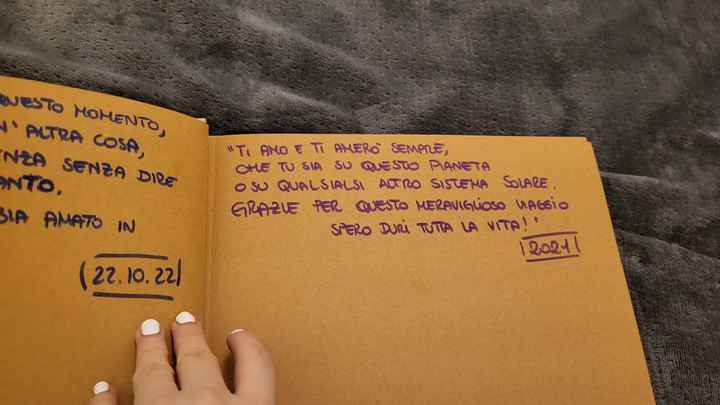 QUESTO MOMENTO,
N'ALTRA COSA,
NZA SENZA DIRE
ANTO.
SIA AMATO IN
(22.10.22)
"TI AMO E TI AMERÒ SEMPRE,
CHE TU SIA SU QUESTO PIANETA
O SU QUALSIALSI ALTRO SISTEMA SOLARE.
GRAZIE PER QUESTO MERAVIGLIOSO VIAGGIO
SPERO DURI TUTTA LA VITA!"
|2021|